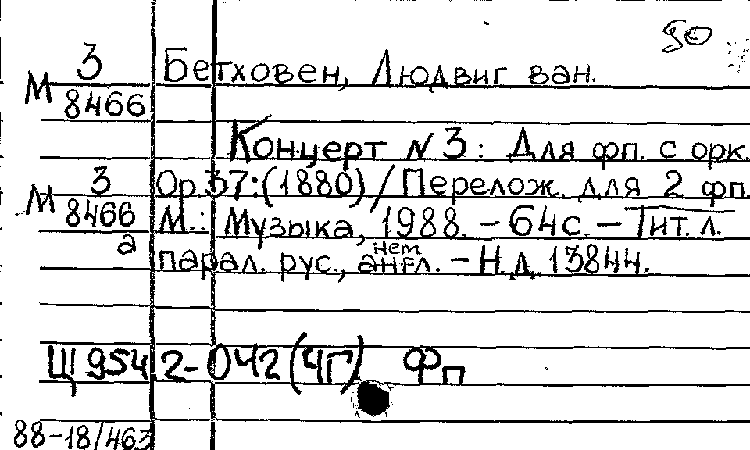 90
М 3 8466
Бетховен, Людвиг ван.
Концерт N 3: Для фп. с орк.
М 3 8466 а
Op.37:(1880)/Перелож. для 2 фп.
М.: Музыка, 1988. - 64с. - Тит. л.
парал. рус., нем англ. - Н.д. 13844.
Щ954.2-042(4Г) Фп
88-18/463